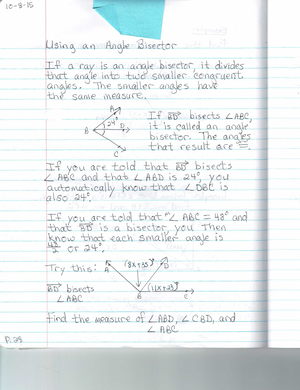 10-8-15
Using an Angle Bisector
If a ray is an angle bisector, it divides
that angle into two smaller congruent
angles. The smaller angles have
the same measure.
A
24°
B
D
C
If BD bisects ∠ABC,
it is called an angle
bisector. The angles
that result are ≅.
If you are told that BD bisects
∠ABC and that ∠ABD is 24°, you
automatically know that ∠DBC is
also 24°.
If you are told that ∠ABC = 48° and
that BD is a bisector, you then
know that each smaller angle is
48/2 or 24°.
Try this:
A
(8x+35)°
D
BD bisects
∠ABC
B
(11x+23)°
C
Find the measure of ∠ABD, ∠CBD, and
∠ABC